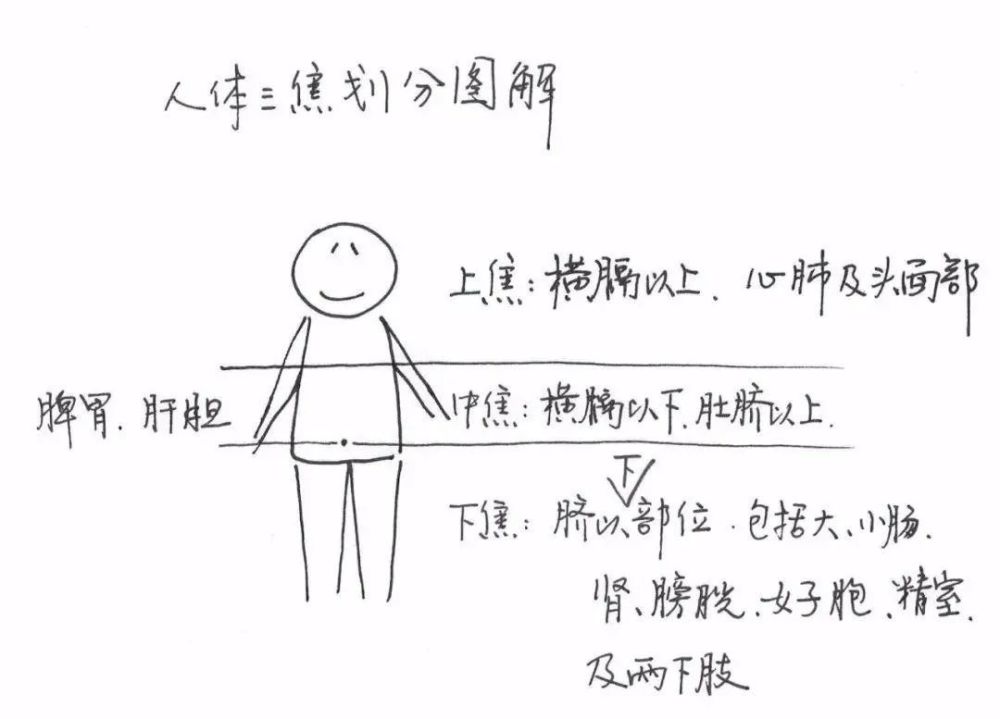 人体三焦划分图解
上焦：横膈以上、心肺及头面部
脾胃、肝胆
中焦：横膈以下、肚脐以上.
下焦：脐以下部位、包括大、小肠、
肾、膀胱、女子胞、精室、
及两下肢